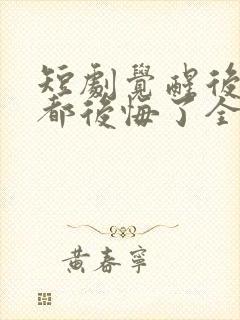 短劇覺醒後
都後悔了全
黃春寧